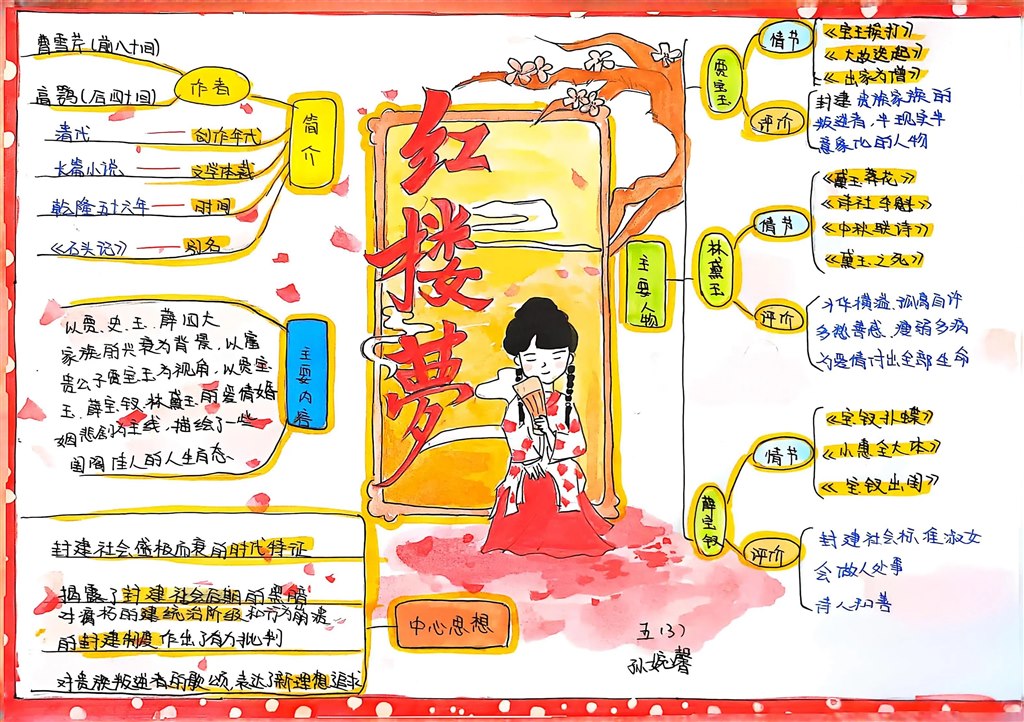 曹雪芹(前八十回)
高鹗(后四十回)
作者
清代 —— 创作年代
长篇小说 —— 文学体裁
乾隆五十六年 —— 时间
《石头记》 —— 别名
简介
以贾、史、王、薛四大
家族的兴衰为背景,以富
贵公子贾宝玉为视角,以贾宝
玉、薛宝钗、林黛玉的爱情婚
姻悲剧为主线,描绘了一些
闺阁佳人的人生百态
主要内容
封建社会盛极而衰的时代特征
揭露了封建社会后期的黑暗
对腐朽的
统治阶级和
的封建制度作出了有力批判
对贵族叛逆者的歌颂,表达了新理想追求
中心思想
红楼梦
主要人物
贾宝玉
情节
《宝玉挨打》
《出家为僧》
评价
封建贵族家族的
叛逆者,半现实半
意象化的人物
林黛玉
情节
《黛玉葬花》
《诗社夺魁》
《中秋联诗》
《黛玉之死》
评价
才华横溢、孤高自许
多愁善感、瘦弱多病
为爱情付出全部生命
薛宝钗
情节
《宝钗扑蝶》
《小惠全大体》
《宝钗出闺》
评价
封建社会标准淑女
会做人处事
待人和善
五(3)
孙婉馨